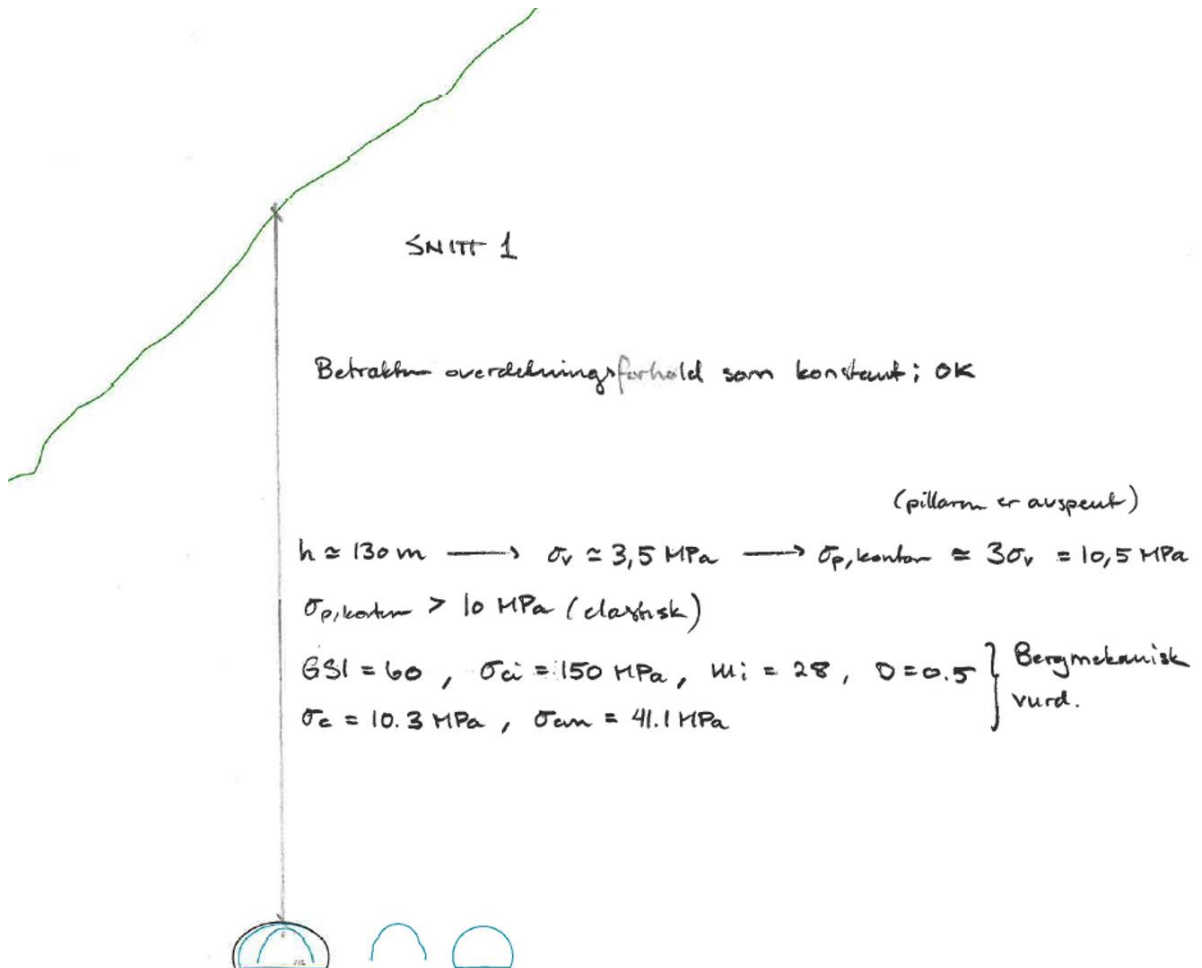 SNITT 1
Betrakter overdekningsforhold som konstant; OK
(pillaren er avspent)
h ≃ 130 m ⟶ σv ≃ 3,5 MPa ⟶ σp,kontur ≃ 3σv = 10,5 MPa
σp,kontur > 10 MPa (elastisk)
GSI = 60, σci = 150 MPa, mi = 28, D = 0.5 } Bergmekanisk
σc = 10.3 MPa, σcm = 41.1 MPa vurd.